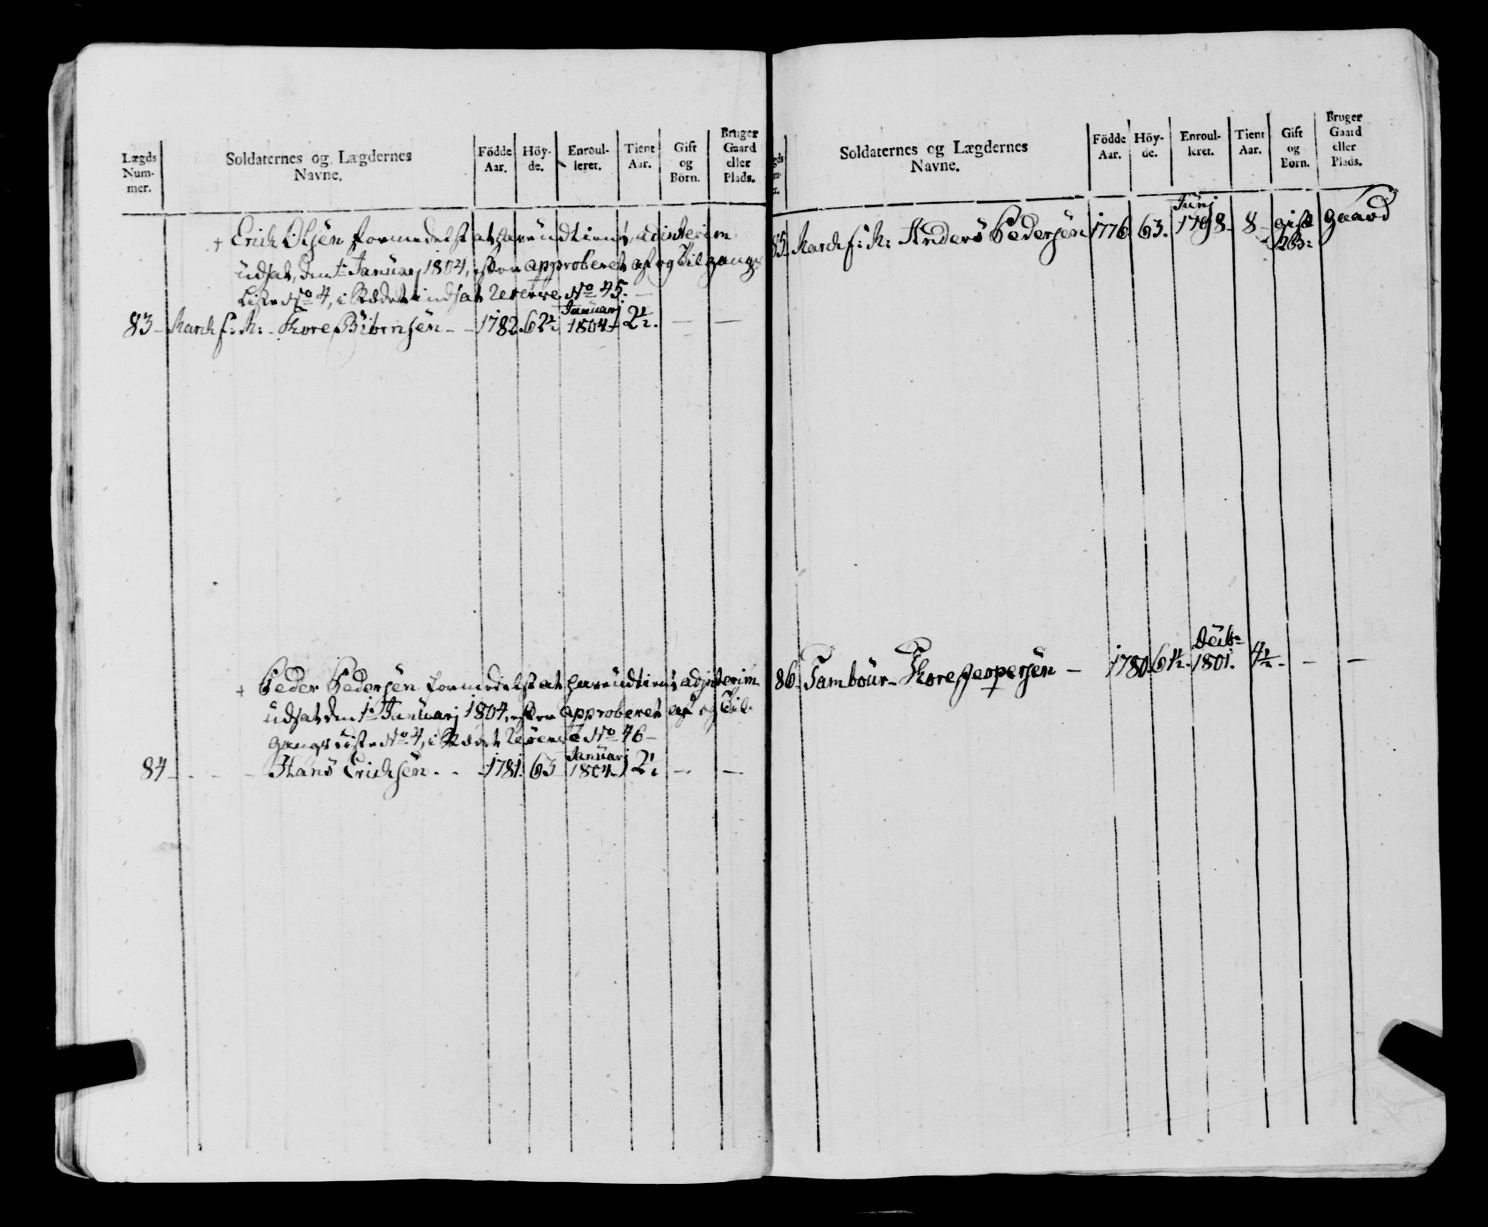 Lægds Num- mer.
Soldaternes og Lægdernes Navne.
Födde Aar.
Höy- de.
Enroul- leret.
Tient Aar.
Gift og Börn.
Bruger Gaard eller Plads.
+ Erich Olsen formedelst at have udtient, ad interim
udsat, den 1te Januarj 1804, som approberet af og Tilgangs
Liste No 4, i stædet indsat Reserve No 45.
83 - March f: K: - Thore Bibrnsen - - 1782. 62½ Januarj 1804 - 2½. - -
+ Peder Pedersen formedelst at have udtient, ad interim
udsat den 1te Januarj 1804, som approberet af og Til-
gangs Liste No 4, i Stædet Reserve No 46 -
84 - - - - Hans Erichsen - - - 1781. 63 Januarj 1804 - 2½ - -
Soldaternes og Lægdernes Navne.
Födde Aar.
Höy- de.
Enroul- leret.
Tient Aar.
Gift og Börn.
Bruger Gaard eller Plads.
85. March f: K: Anders Pedersen 1776 63. Junj 1798. 8 - gift 2B: gaard
86. Tambour - Thore Jespersen - 1780. Decbr 1801. 4½. - -